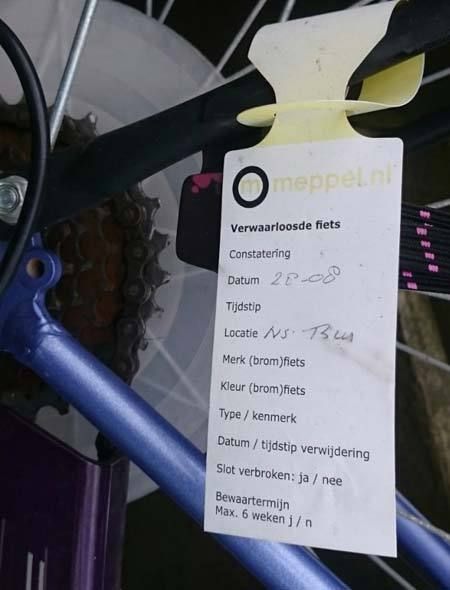 meppel.nl
Verwaarloosde fiets
Constatering
Datum 28-08
Tijdstip
Locatie NS.
Merk (brom)fiets
Kleur (brom)fiets
Type / kenmerk
Datum / tijdstip verwijdering
Slot verbroken: ja / nee
Bewaartermijn
Max. 6 weken j / n